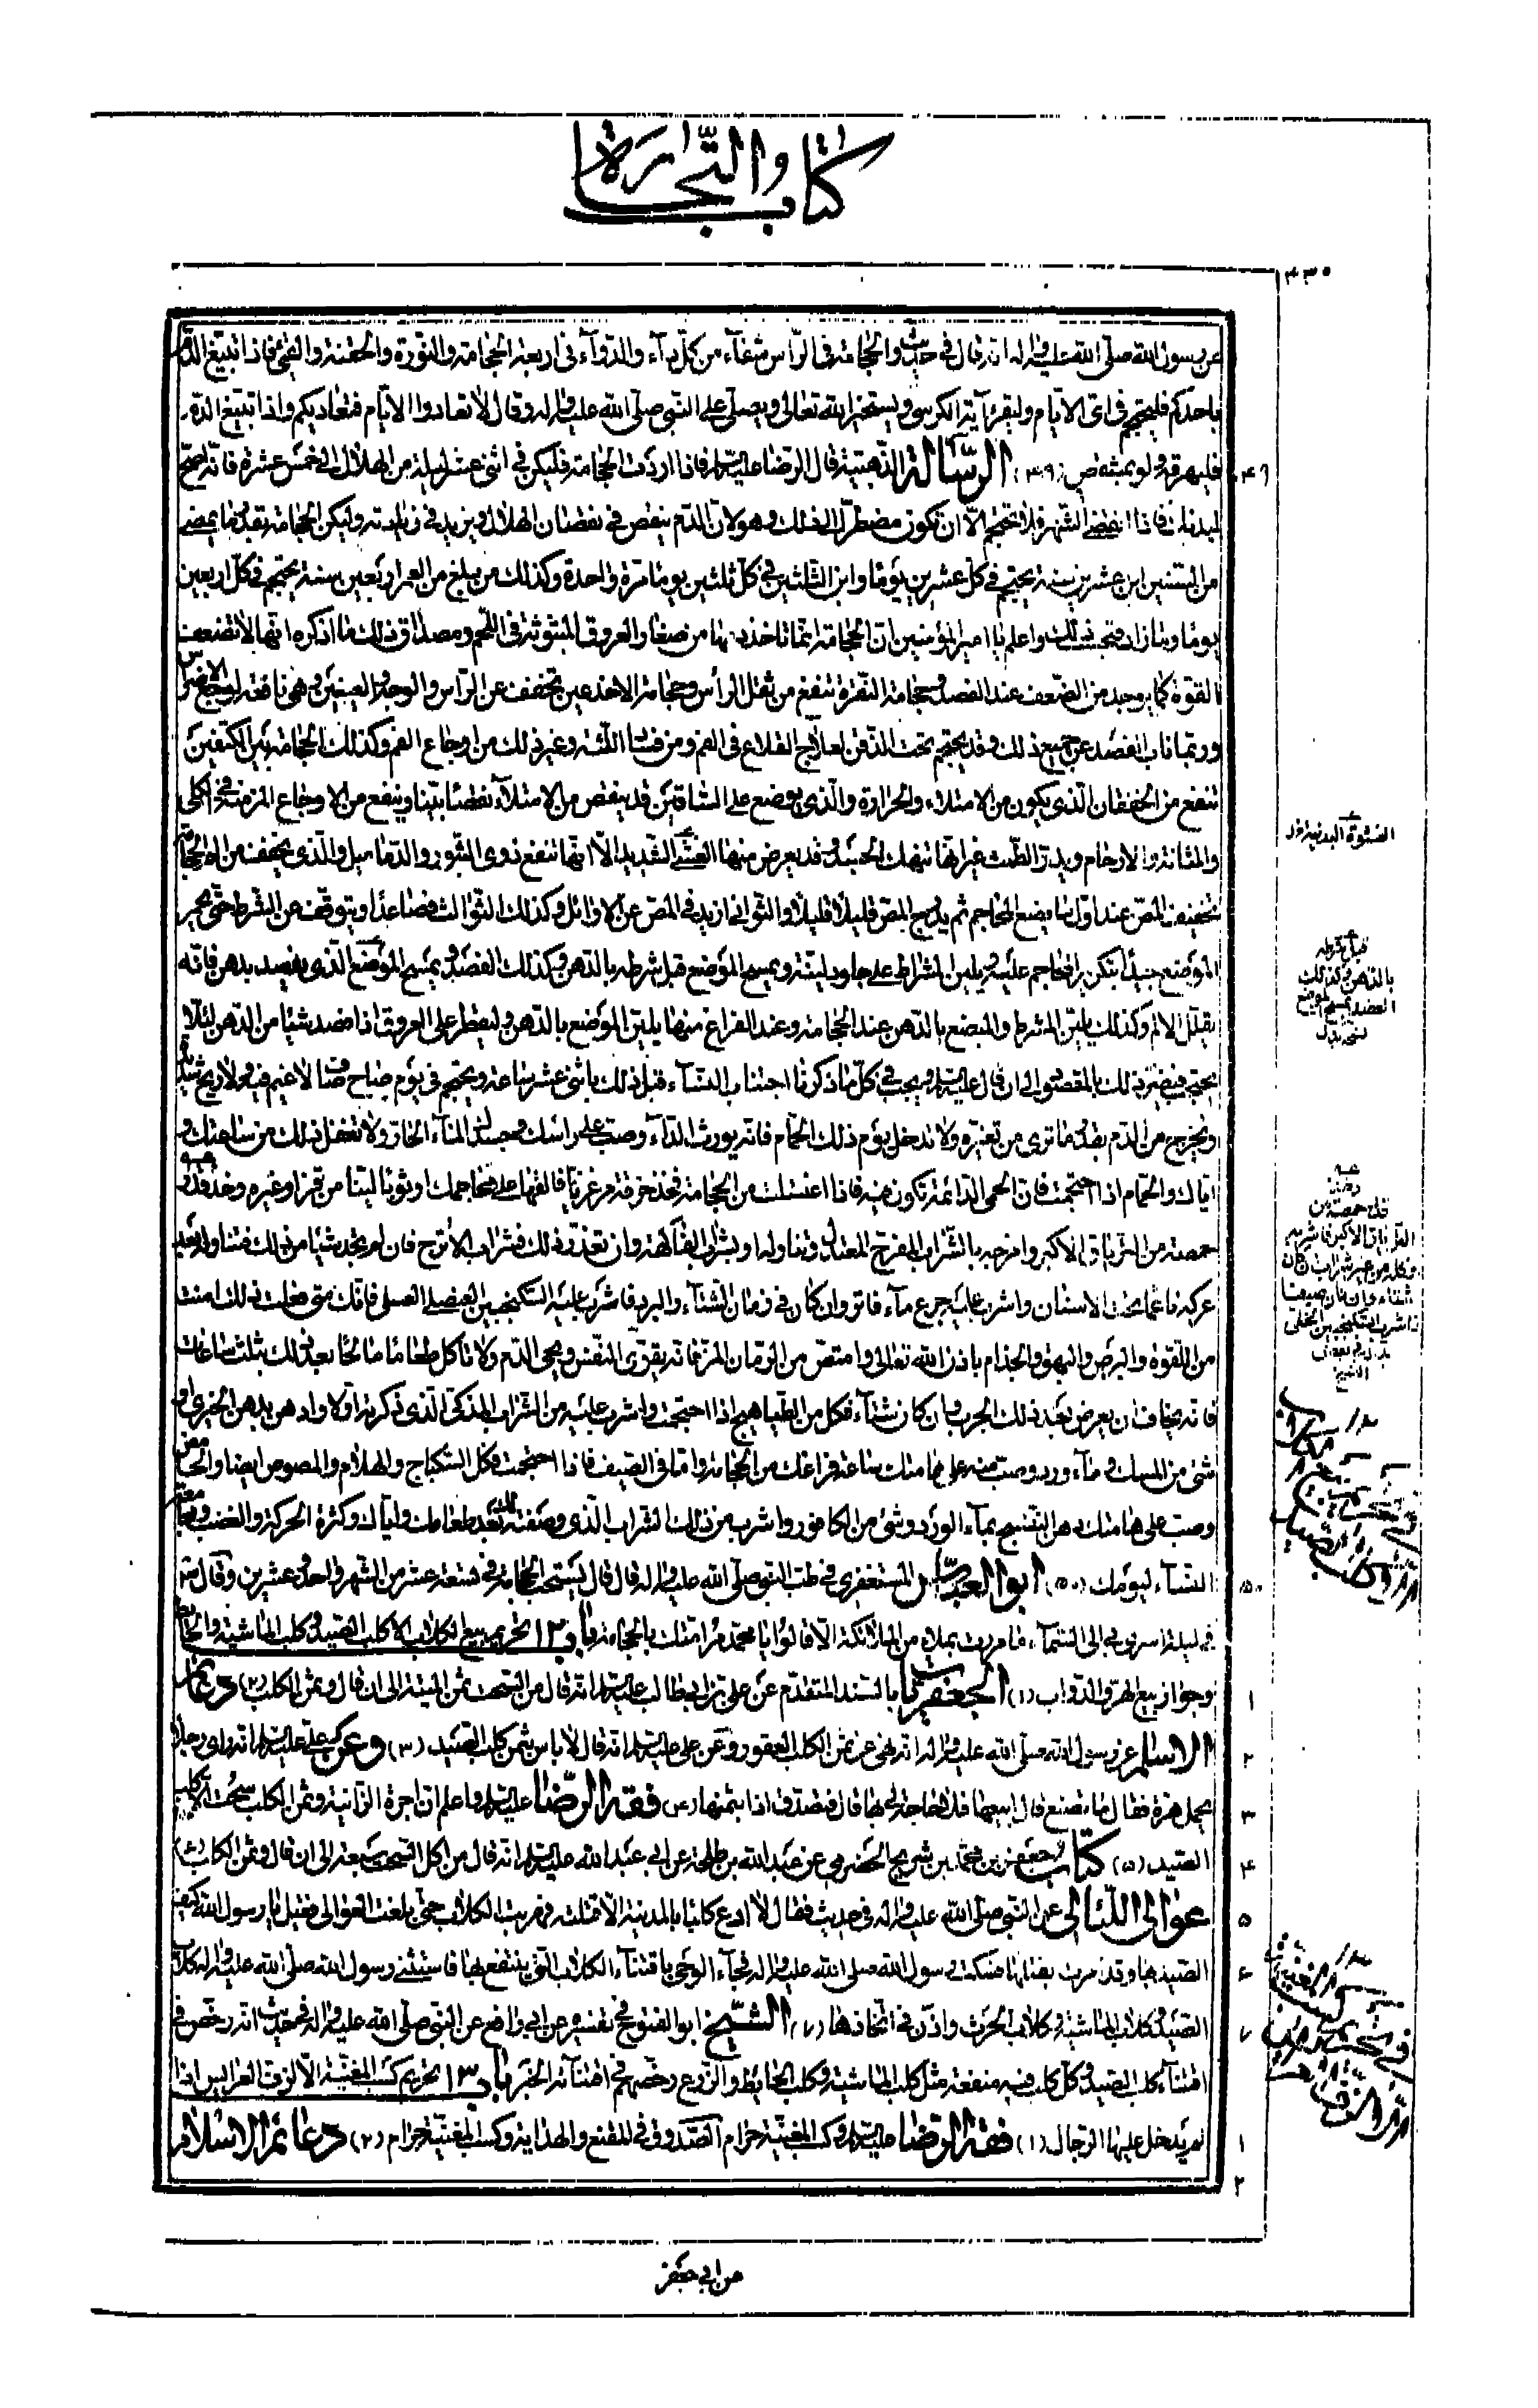 كتاب التجارة
٤٣٥
عن رسول الله صلى الله عليه واله انه قال في حديث والحجامة في الرأس شفاء من كل داء والدواء في اربعة الحجامة والنورة والحقنة والقئ فاذا تبيغ الدم
باحدكم فليحتجم في اى الايام وليقرء آية الكرسي ويستخير الله تعالى ويصلي على النبي صلى الله عليه واله وقال لا تعادوا الايام فتعاديكم واذا تبيغ الدم
فليهرقه ولو بمشقص (٤٩) الرسالة الذهبية قال الرضا عليه السلم فاذا اردت الحجامة فليكن في اثنى عشر ليلة من الهلال الى خمس عشرة فانه اصح
لبدنك فاذا انقضى الشهر فلا تحتجم الا ان تكون مضطرا الى ذلك وهو لان الدم ينقص في نقصان الهلال ويزيد في زيادته وليكن الحجامة بقدر ما يمضي
من السنين ابن عشرين سنة يحتجم في كل عشرين يوما وابن الثلثين في كل ثلثين يوما مرة واحدة وكذلك من بلغ من العمر اربعين سنة يحتجم في كل اربعين
يوما وما زاد فبحسب ذلك واعلم يا امير المؤمنين ان الحجامة انما تاخذ دمها من صغار العروق المبثوثة في اللحم ومصداق ذلك ما اذكره انها لا تضعف
القوة كما يوجد من الضعف عند الفصد وحجامة النقرة تنفع من ثقل الرأس وحجامة الاخدعين تخفف عن الرأس والوجه والعينين وهي نافعة لوجع الاضراس
وربما ناب الفصد عن جميع ذلك وقد يحتجم تحت الذقن لعلاج القلاع في الفم ومن فساد اللثة وغير ذلك من اوجاع الفم وكذلك الحجامة بين الكتفين
تنفع من الخفقان الذي يكون من الامتلاء والحرارة والذي يوضع على الساقين قد ينقص من الامتلاء نقصا بينا وينفع من الاوجاع المزمنة في الكلى
والمثانة والارحام ويدر الطمث غير انها تنهك الجسد وقد يعرض منها الغشى الشديد الا انها تنفع ذوى البثور والدماميل والذي يخفف من الم الحجامة
تخفيف المص عند اول ما يضع المحاجم ثم يدرج المص قليلا قليلا والثواني ازيد في المص عن الاوائل وكذلك الثوالث فصاعدا ويتوقف عن الشرط حتى يحمر
الموضع جيدا بتكرير المحاجم عليه ويلين المشراط على جلود لينة ويمسح الموضع قبل شرطه بالدهن وكذلك الفصد ويمسح الموضع الذي يفصد بدهن فانه
يقلل الالم وكذلك يلين المشرط والمبضع بالدهن عند الحجامة وعند الفراغ منها يلين الموضع بالدهن وليقطر على العروق اذا فصد شيئا من الدهن لئلا
يحتجب فيضر ذلك بالمقصود الى ان قال عليه السلم ويجب في كل ما ذكرنا اجتناب النساء قبل ذلك باثنى عشر ساعة ويحتجم في يوم صاح صاف لا غيم فيه ولا ريح شديدة
ويخرج من الدم بقدر ما ترى من تغيره ولا تدخل يوم ذلك الحمام فانه يورث الداء وصب على راسك وجسدك الماء الحار ولا تغفل ذلك من ساعتك و
اياك والحمام اذا احتجمت فان الحمى الدائمة تكون منه فاذا اغتسلت من الحجامة فخذ خرقة مرعزيا فالقها على محاجمك او ثوبا لينا من قز او غيره وخذ قدر
حمصة من الترياق الاكبر وامزجه بالشراب المفرح المعتدل وتناوله او بشراب الفاكهة وان تعذر ذلك فشراب الاترج فان لم تجد شيئا من ذلك فتناوله بعد
عركه ناعما تحت الاسنان واشرب عليه جرع ماء فاتر وان كان في زمان الشتاء والبرد فاشرب عليه السكنجبين العنصلي العسلي فانك متى فعلت ذلك امنت
من اللقوة والبرص والبهق والجذام باذن الله تعالى وامتص من الرمان المز فانه يقوى النفس ويحيى الدم ولا تاكل طعاما مالحا بعد ذلك بثلث ساعات
فانه يخاف ان يعرض بعد ذلك الجرب وان كان شتاء فكل من الطياهيج اذا احتجمت واشرب عليه من الشراب المذكى الذي ذكرته اولا وادهن بدهن الخيرى و
شئ من المسك وماء ورد وصب منه على هامتك ساعة فراغك من الحجامة واما في الصيف فاذا احتجمت فكل السكباج والهلام والمصوص ايضا والحامض
وصب على هامتك دهن البنفسج بماء الورد وشئ من الكافور واشرب من ذلك الشراب الذي وصفته لك بعد طعامك واياك وكثرة الحركة والغضب ومجامعة
النساء ليومك (٥٠) ابو العباس المستغفري في طب النبي صلى الله عليه واله قال قال يستحب الحجامة في تسعة عشر من الشهر واحد وعشرين وقال
في ليلة اسرى بي الى السماء ما مررت بملاء من الملائكة الا قالوا يا محمد مر امتك بالحجامة باب ١٢ تحريم بيع الكلاب الا كلب الصيد وكلب الماشية والحائط
وجواز بيع الهر والدواب (١) الجعفريات بالسند المتقدم عن علي بن ابي طالب عليه السلم انه قال من السحت ثمن الميتة الى ان قال وثمن الكلب (٢) دعائم
الاسلام عن رسول الله صلى الله عليه واله انه نهى عن ثمن الكلب العقور وعن علي عليه السلم انه قال لا باس بثمن كلب الصيد (٣) وعن علي عليه السلم انه راى رجلا
يحمل هرة فقال ما تصنع بها قال ابيعها فلا حاجة لي بها قال فتصدق اذا بثمنها (٤) فقه الرضا عليه السلم واعلم ان اجرة الزانية وثمن الكلب سحت الا كلب
الصيد (٥) كتاب جعفر بن محمد بن شريح الحضرمي عن عبد الله بن طلحة عن ابي عبد الله عليه السلم انه قال من اكل السحت سبعة الى ان قال وثمن الكلب (٦)
عوالى اللئالى عن النبي صلى الله عليه واله في حديث فقال لا ادع كلبا بالمدينة الا قتلته فهربت الكلاب حتى بلغت العوالى فقيل يا رسول الله كيف
الصيد بها وقد امرت بقتلها فسكت رسول الله صلى الله عليه واله فجاء الوحي باقتناء الكلاب التي ينتفع بها فاستثنى رسول الله صلى الله عليه واله كلاب
الصيد وكلاب الماشية وكلاب الحرث واذن في اتخاذها (٧) الشيخ ابو الفتوح في تفسيره عن ابي رافع عن النبي صلى الله عليه واله في حديث انه رخص في
اقتناء كلب الصيد وكل كلب فيه منفعة مثل كلب الماشية وكلب الحائط والزرع رخصهم في اقتنائه الخبر باب ١٣ تحريم كسب المغنية الا لزف العرائس اذا
لم يدخل عليها الرجال (١) فقه الرضا عليه السلم وكسب المغنية حرام الصدوق في المقنع والهداية وكسب المغنية حرام (٢) دعائم الاسلام
٤٩
٥٠
١
٢
٣
٤
٥
٦
٧
١
٢
قبل شرطه
بالدهن وكذلك
الفصد يمسح الموضع
عن ابي جعفر